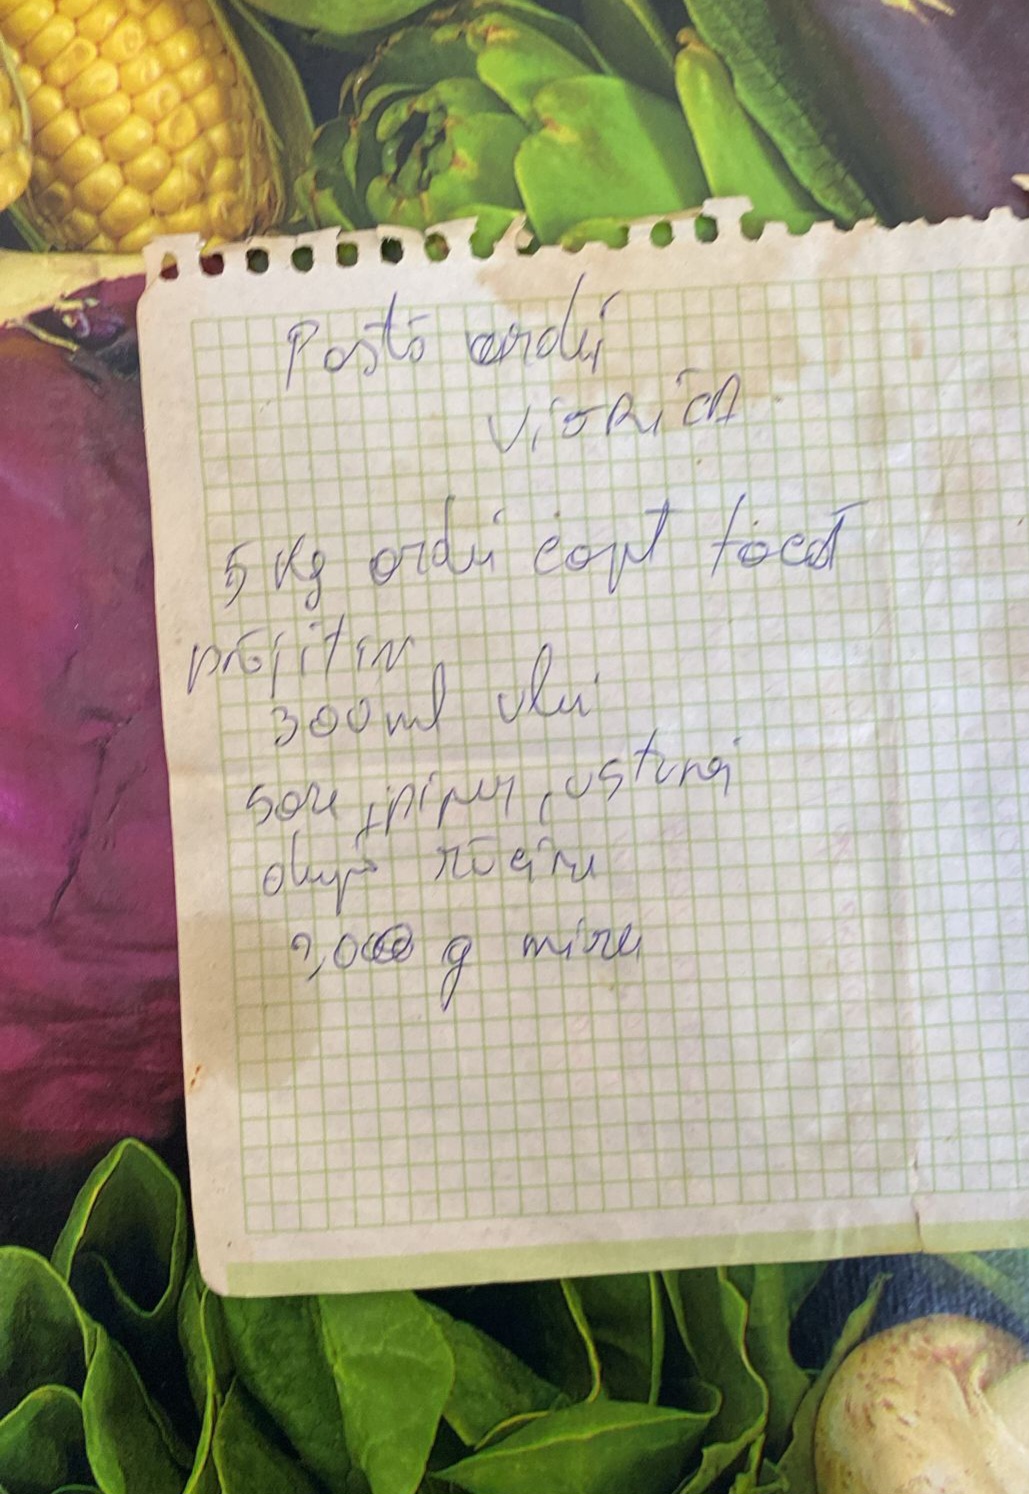 Pastă ardei
VIORICA
5 kg ardei copt tocat
prăjit în
300 ml ulei
sare, piper, usturoi
după răcire
g miere